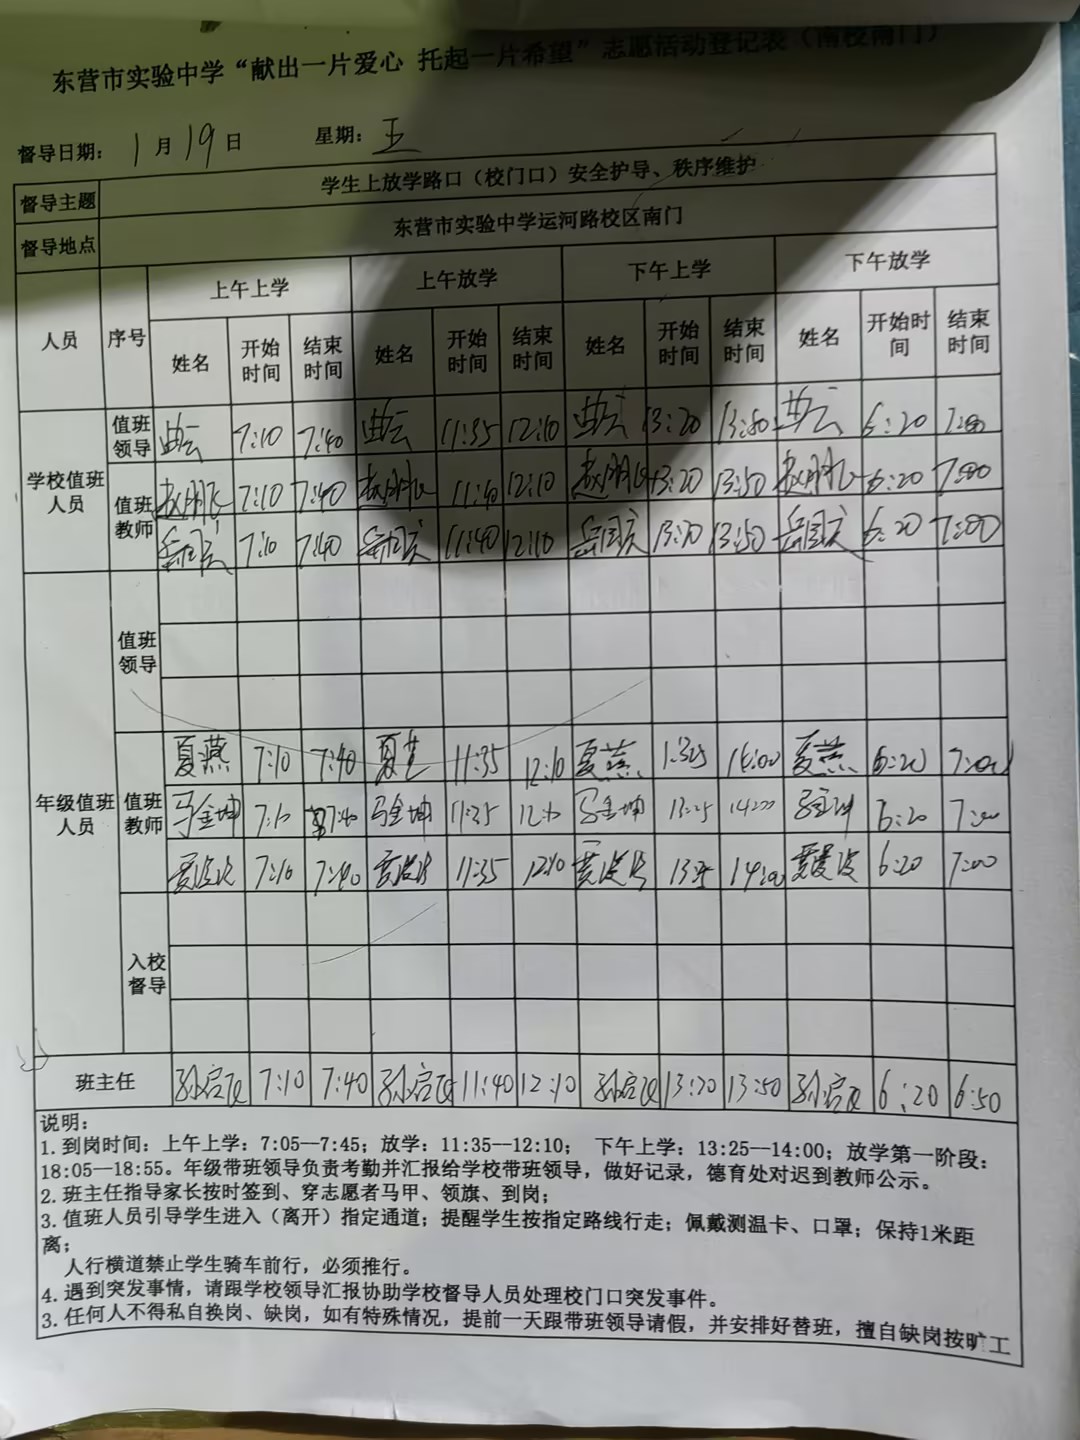 东营市实验中学“献出一片爱心 托起一片希望”志愿活动登记表（南校南门）
督导日期： 1 月 19 日 星期： 五
督导主题 学生上放学路口（校门口）安全护导、秩序维护
督导地点 东营市实验中学运河路校区南门
人员 序号 上午上学 上午放学 下午上学 下午放学
姓名 开始时间 结束时间 姓名 开始时间 结束时间 姓名 开始时间 结束时间 姓名 开始时间 结束时间
学校值班人员 值班领导 曲云 7:10 7:40 曲云 11:35 12:10 曲云 13:20 曲云 6:20 7:00
值班教师 赵明飞 7:10 7:40 赵明飞 11:40 12:10 赵明飞 13:20 13:50 赵明飞 6:20 7:00
岳国庆 7:10 7:40 岳国庆 11:40 12:10 岳国庆 13:20 13:50 岳国庆 6:20 7:00
年级值班人员 值班领导
值班教师 夏燕 7:10 7:40 夏燕 11:35 12:10 夏燕 14:00 夏燕 6:20 7:00
马金坤 7:10 7:40 马金坤 11:35 12:10 马金坤 13:25 14:00 马金坤 6:20 7:00
7:10 7:40 11:35 12:10 14:00 6:20 7:00
入校督导
班主任 7:10 7:40 11:40 12:10 13:20 13:50 6:20 6:50
说明：
1. 到岗时间：上午上学：7:05--7:45；放学：11:35--12:10； 下午上学：13:25--14:00；放学第一阶段：
18:05--18:55。年级带班领导负责考勤并汇报给学校带班领导，做好记录，德育处对迟到教师公示。
2. 班主任指导家长按时签到、穿志愿者马甲、领旗、到岗；
3. 值班人员引导学生进入（离开）指定通道；提醒学生按指定路线行走；佩戴测温卡、口罩；保持1米距
离；
人行横道禁止学生骑车前行，必须推行。
4. 遇到突发事情，请跟学校领导汇报协助学校督导人员处理校门口突发事件。
3. 任何人不得私自换岗、缺岗，如有特殊情况，提前一天跟带班领导请假，并安排好替班，擅自缺岗按旷工